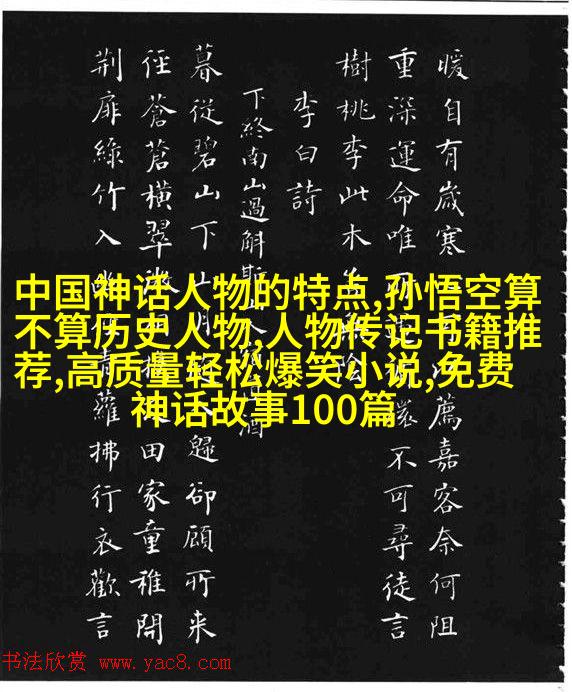 暖自有歲寒薦嘉客奈何阻
重深運命唯不可尋徒言
樹桃李此木
李白詩
下終南山過斛斯酒
暮從碧山下歸卻顧所来
徑蒼蒼橫翠田家童稚開
荆扉綠竹入蘿拂行衣歡言
中国神话人物的特点,孙悟空算
不算历史人物,人物传记书籍推
荐,高质量轻松爆笑小说,免费
神话故事100篇
书法欣赏 www.yac8.com